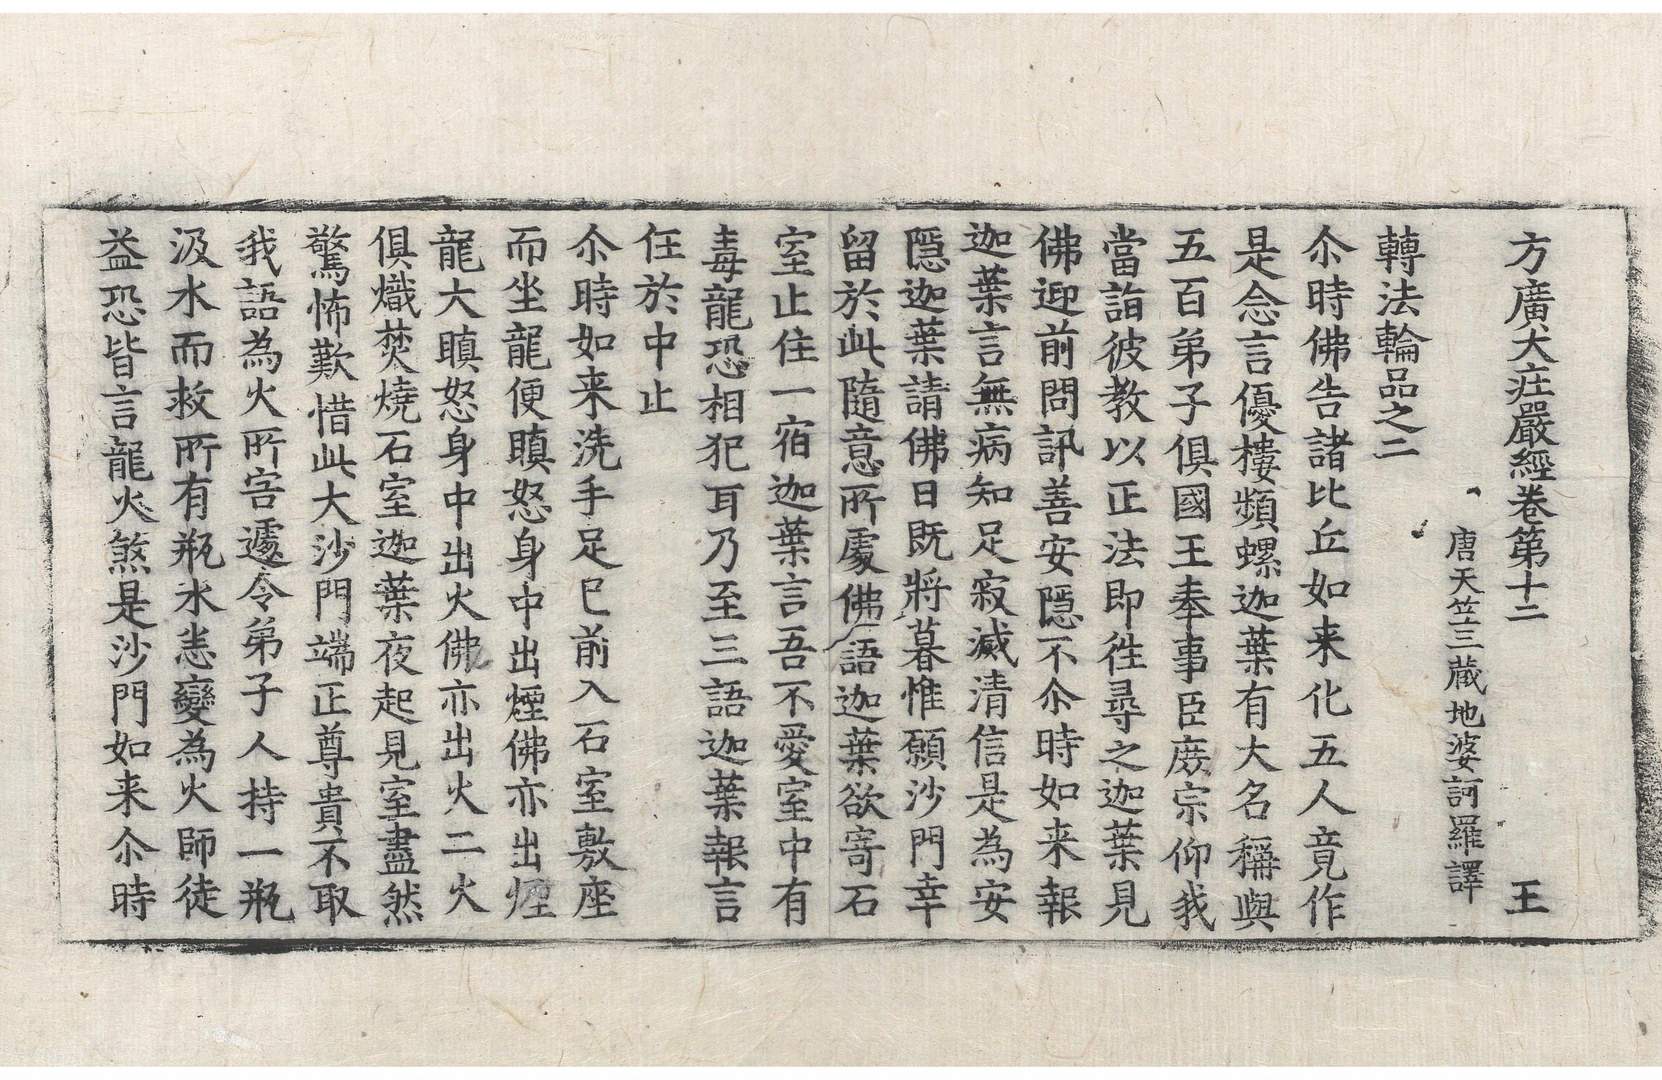 方廣大莊嚴經卷第十二 王
唐天竺三蔵地婆訶羅譯
轉法輪品之二
尒時佛告諸比丘如来化五人竟作
是念言優樓頻螺迦葉有大名稱與
五百弟子俱國王奉事臣庶宗仰我
當詣彼教以正法即往尋之迦葉見
佛迎前問訊善安隱不尒時如来報
迦葉言無病知足寂滅清信是為安
隱迦葉請佛日既將暮惟願沙門幸
留於此隨意所處佛語迦葉欲寄石
室止住一宿迦葉言吾不愛室中有
毒龍恐相犯耳乃至三語迦葉報言
任於中止
尒時如来洗手足已前入石室敷座
而坐龍便瞋怒身中出煙佛亦出煙
龍大瞋怒身中出火佛亦出火二火
俱熾焚燒石室迦葉夜起見室盡然
驚怖歎惜此大沙門端正尊貴不取
我語為火所害遽令弟子人持一瓶
汲水而救所有瓶水恚變為火師徒
益恐皆言龍火煞是沙門如来尒時